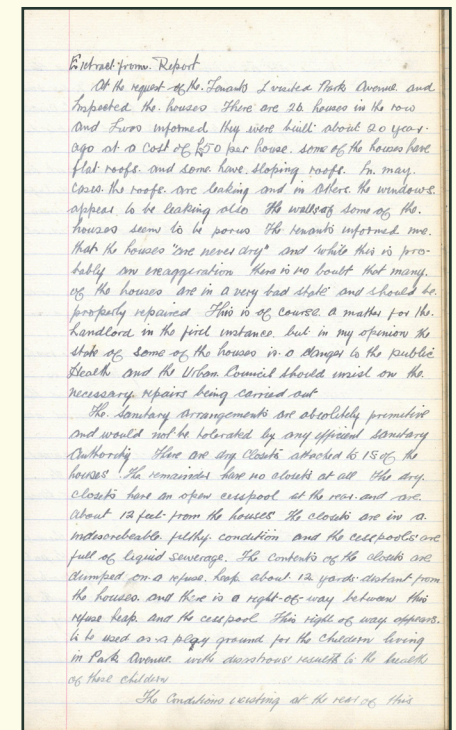 Extract from Report
At the request of the Tenants I visited Parks Avenue and
Inspected the houses There are 26 houses in the row
and I was informed they were built about 20 years
ago at a cost of £50 per house. some of the houses have
flat roofs. and some have sloping roofs. In many
cases the roofs are leaking and in others the windows
appear to be leaking also The walls of some of the
houses seem to be porus The tenants informed me
that the houses "are never dry" and while this is pro-
bably an exaggeration there is no doubt that many
of the houses are in a very bad state and should be
properly repaired This is of course a matter for the
Landlord in the first instance but in my opinion the
state of some of the houses is a danger to the Public
Health and the Urban Council should insist on the
necessary repairs being carried out
The Sanitary arrangements are absolutely primitive
and would not be tolerated by any efficient sanitary
Authority There are dry closets attached to 15 of the
houses The remainder have no closets at all The dry
closets have an open cesspool at the rear and are
about 12 feet from the houses The closets are in a
indiscrebeable filthy condition and the cesspools are
full of liquid sewerage. The contents of the closets are
dumped on a refuse heap about 12 yards distant from
the houses. and there is a right-of-way between this
refuse heap and the cesspool This right of way appears
to be used as a play ground for the children living
in Parks Avenue with disastrous results to the health
of these children
The Conditions existing at the rear of this